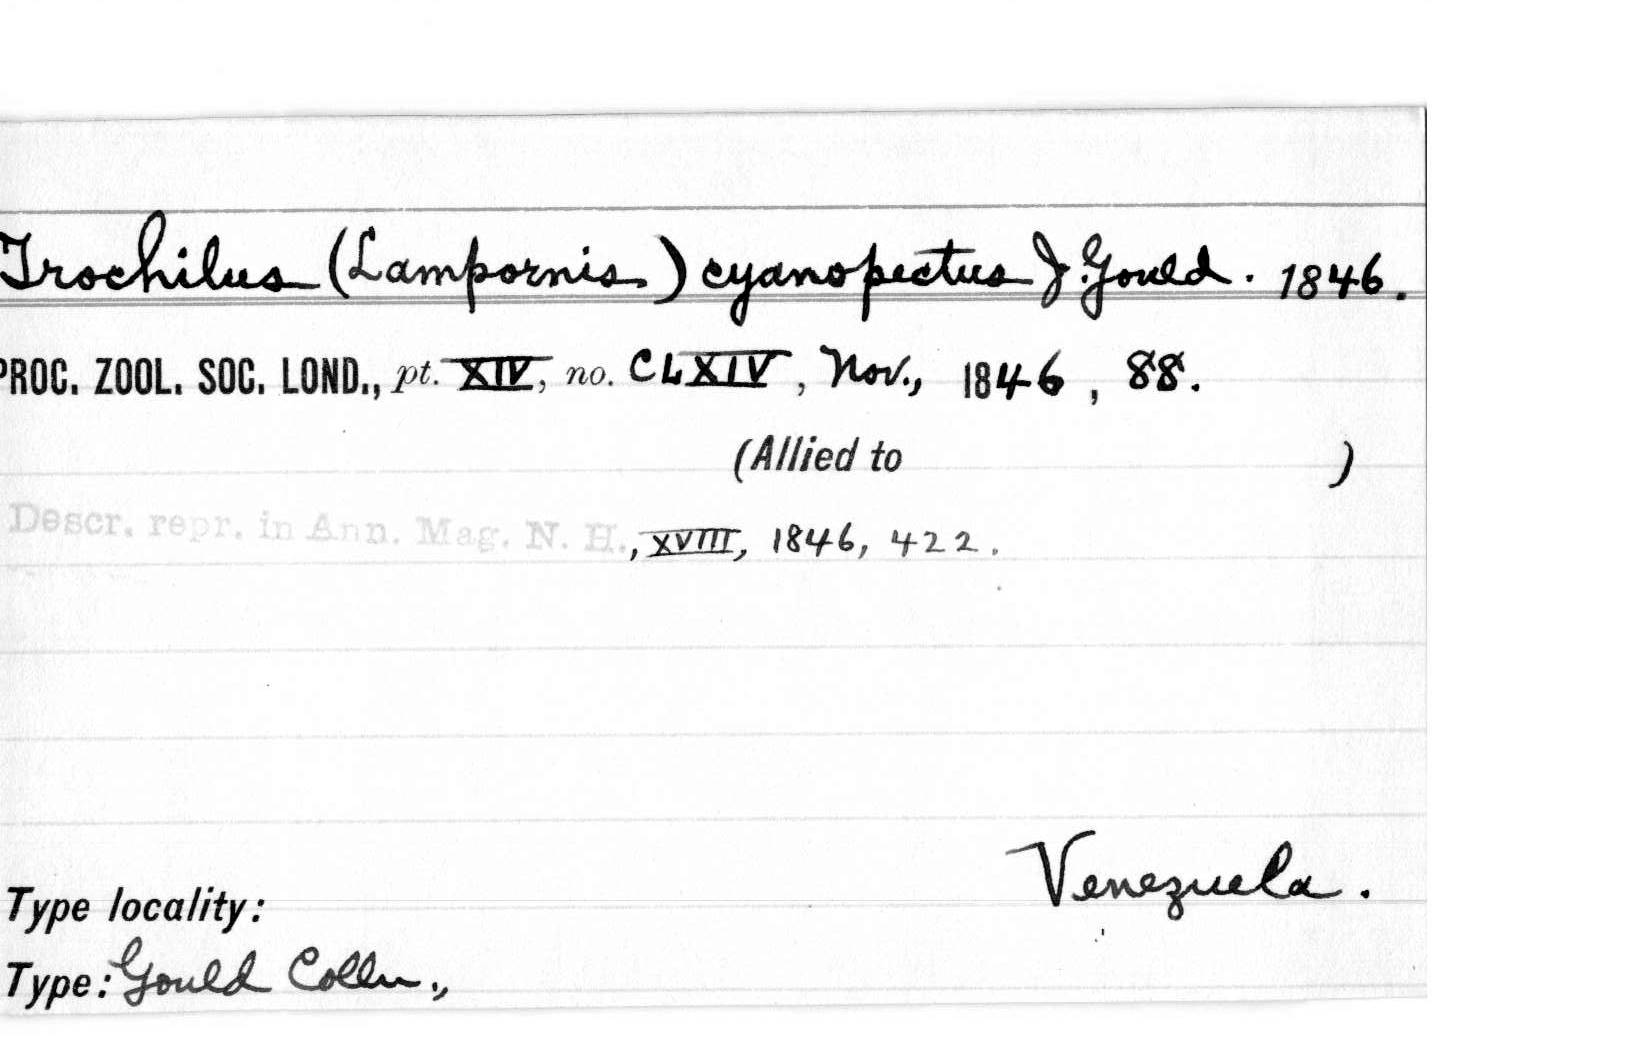 Trochilus (Lampornis) cyanopectus J. Gould. 1846.
PROC. ZOOL. SOC. LOND., pt. XIV, no. CLXIV, Nov., 1846, 88.
(Allied to )
Descr. repr. in Ann. Mag. N. H., XVIII, 1846, 422.
Venezuela.
Type locality:
Type: Gould Colln.,